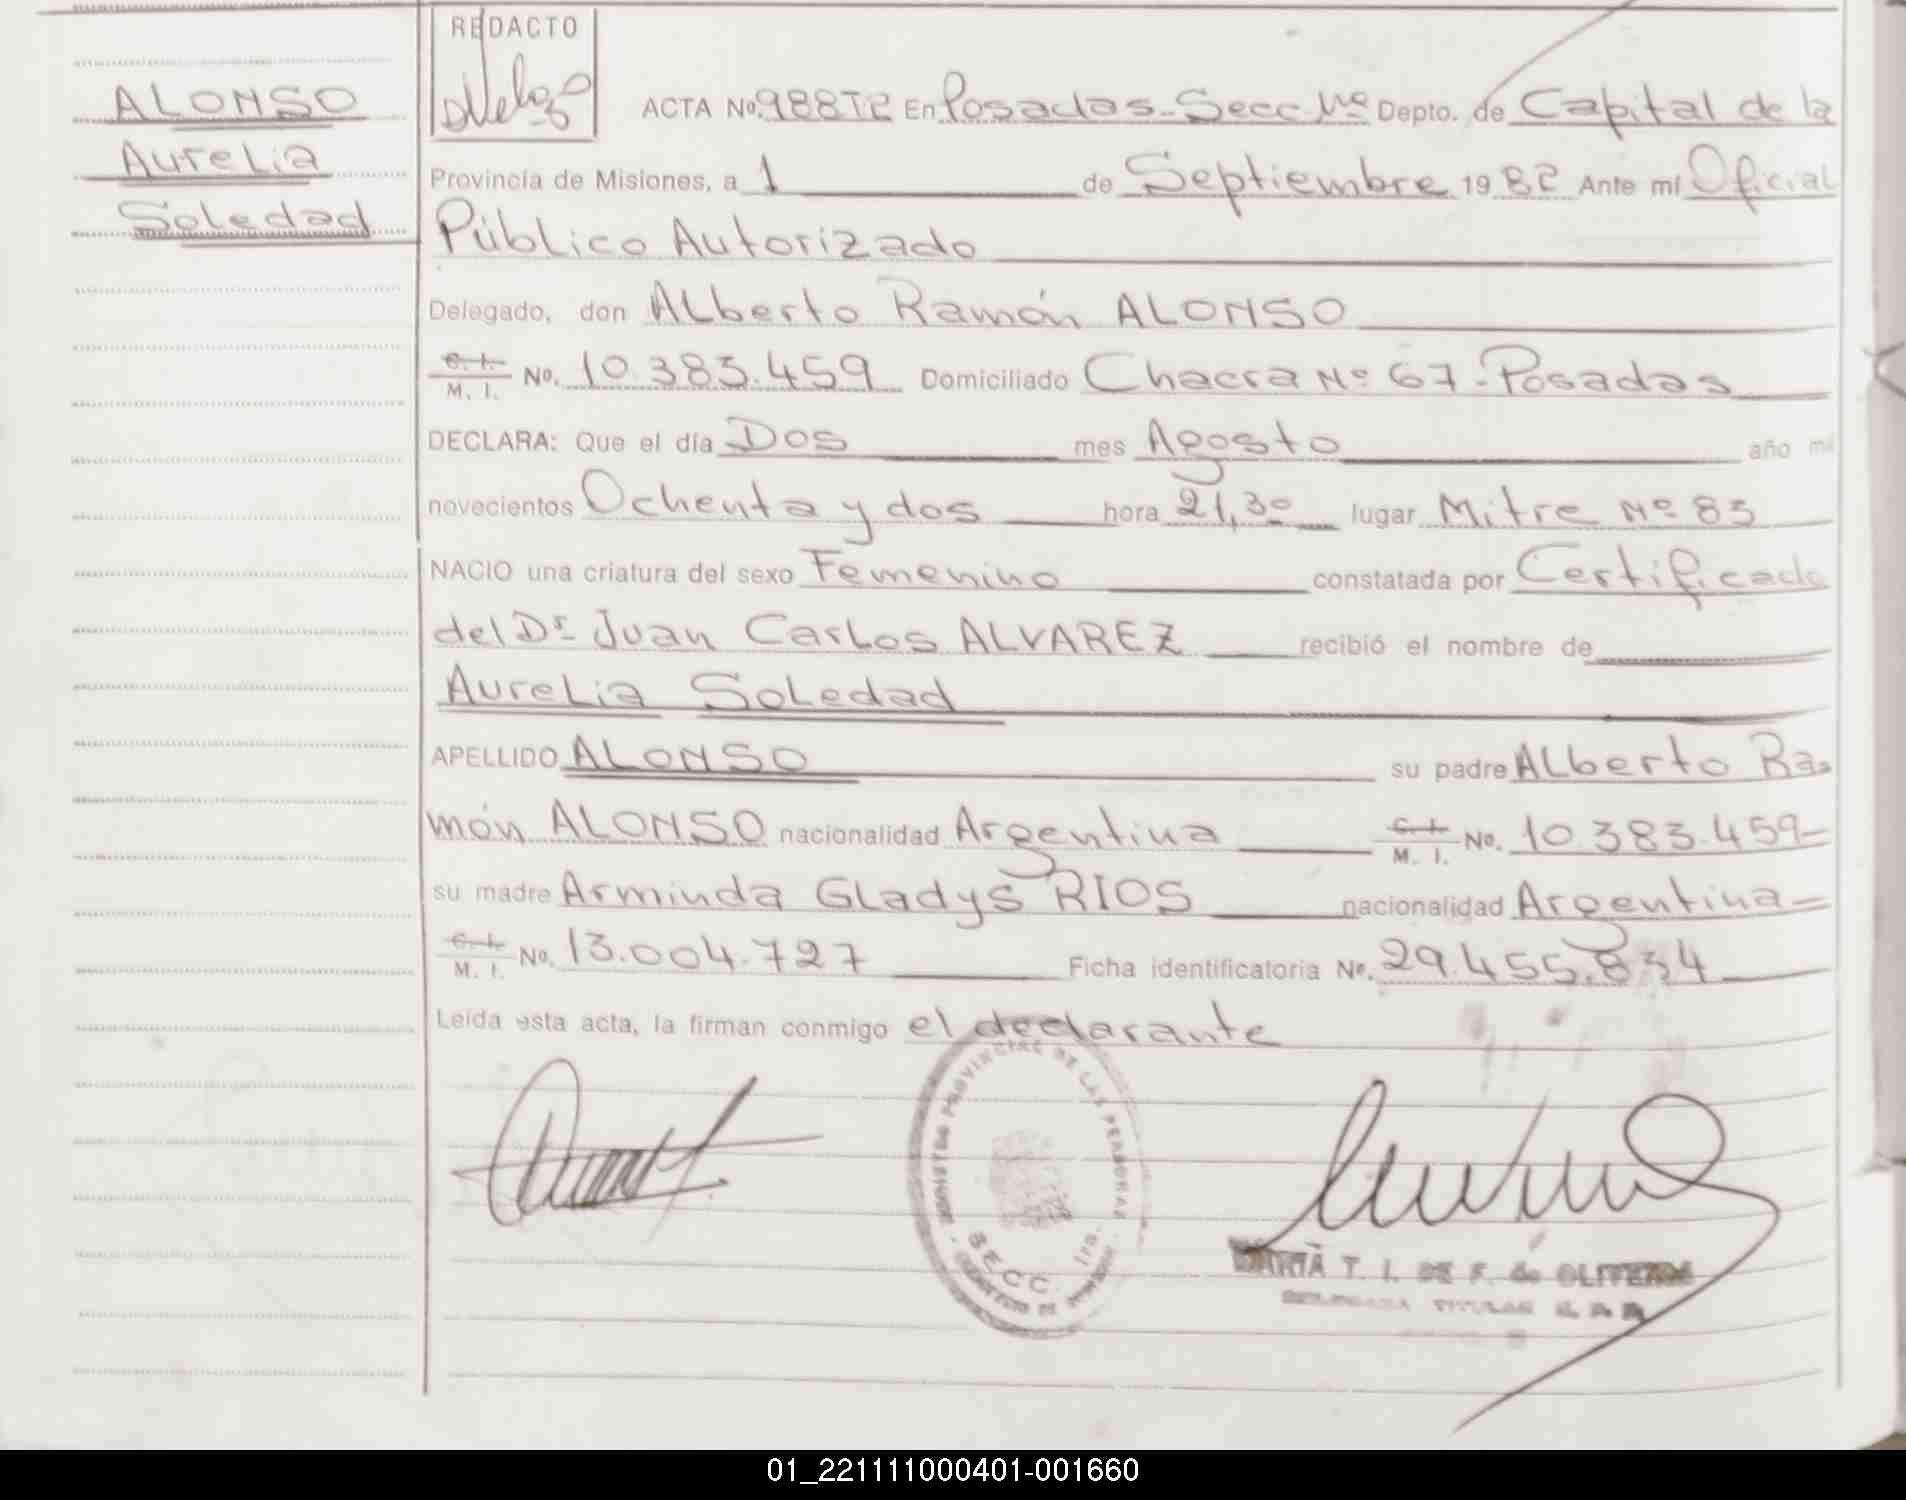 ALONSO
Aurelia
Soledad
REDACTO
ACTA No. 988 En Posadas - Secc. Depto. de Capital de la
Provincia de Misiones, a 1 de Septiembre 1982 Ante mí Oficial
Público Autorizado
Delegado, don Alberto Ramón ALONSO
C. I. M. I. No. 10.383.459 Domiciliado Chacra Nº 67 - Posadas
DECLARA: Que el día Dos mes Agosto año mil
novecientos Ochenta y dos hora 21,30 lugar Mitre Nº 83
NACIO una criatura del sexo Femenino constatada por Certificado
del Dr. Juan Carlos ALVAREZ recibió el nombre de
Aurelia Soledad
APELLIDO ALONSO su padre Alberto Ra-
món ALONSO nacionalidad Argentina C. I. M. I. No. 10.383.459-
su madre Arminda Gladys RIOS nacionalidad Argentina-
C. I. M. I. No. 13.004.727 Ficha identificatoria No. 29.455.834
Leída esta acta, la firman conmigo el declarante
PROVINCIAL DE LAS PERSONAS
SECC. 1ra.
T. I. DE F. de
01_221111000401-001660